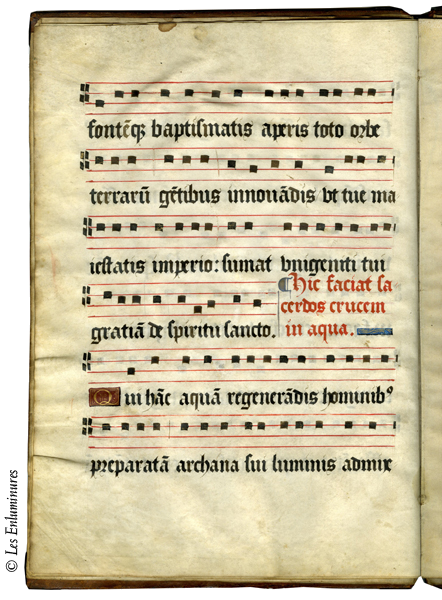 fontēqꝫ baptismatis aperis toto orbe
terrarū gētibus innouādis vt tue ma
iestatis imperio: sumat vnigeniti tui
gratiā de spiritu sancto.
¶ Hic faciat sa
cerdos crucem
in aqua.
Qui hāc aquā regenerādis hominibꝰ
preparatā archana sui luminis admix
© Les Enluminures